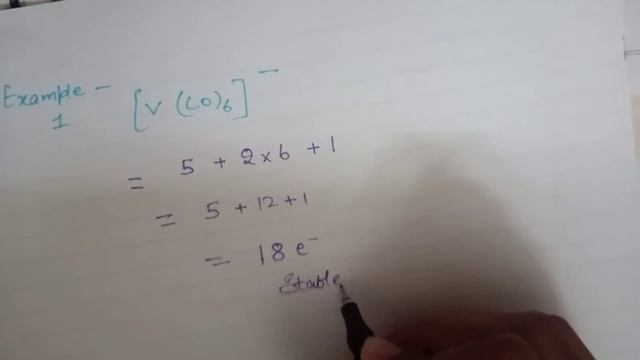 Example - [V (CO)6]⁻
1
= 5 + 2 × 6 + 1
= 5 + 12 + 1
= 18 e⁻
Stable